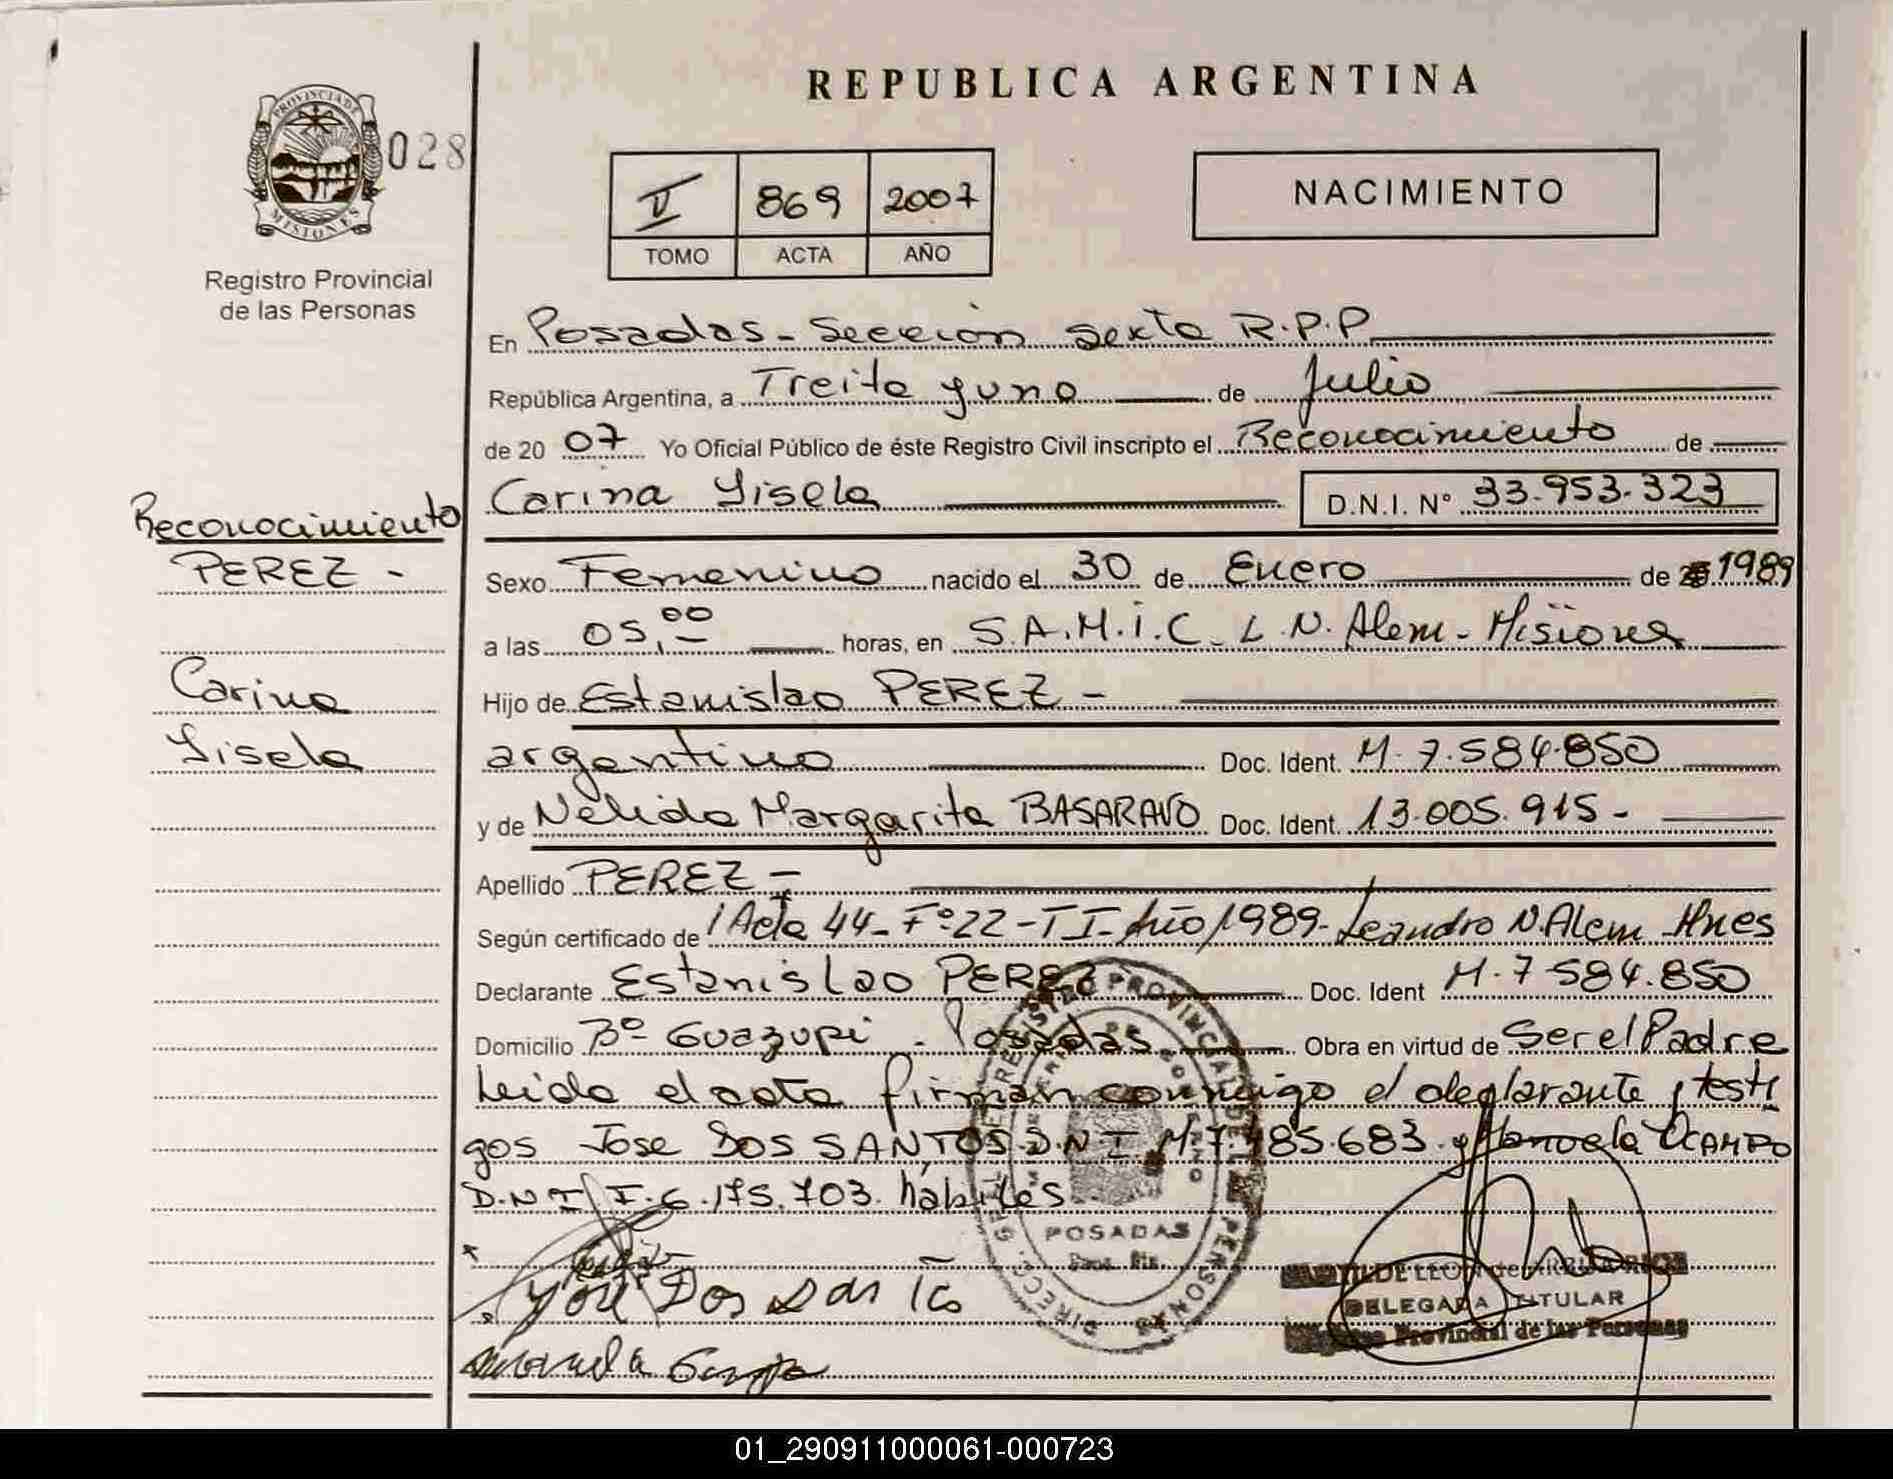 REPUBLICA ARGENTINA
PROVINCIA DE
MISIONES
028
Registro Provincial
de las Personas
II 869 2007
TOMO ACTA AÑO
NACIMIENTO
En Posadas - Sección sexta R.P.P
República Argentina, a Treita y uno de Julio
de 2007 Yo Oficial Público de éste Registro Civil inscripto el Reconocimiento de
Carina Gisela D.N.I. Nº 33.953.323
Reconocimiento
PEREZ -
Carina
Gisela
Sexo Femenino nacido el 30 de Enero de 1989
a las 05,00 horas, en S.A.M.I.C - L.N. Alem - Misiones
Hijo de Estanislao PEREZ -
argentino Doc. Ident. M. 7.584.850
y de Nelida Margarita BASARAVO Doc. Ident. 13.005.915 -
Apellido PEREZ -
Según certificado de Acta 44 - Fº 22 - T I - Año 1989 - Leandro N. Alem Mnes
Declarante Estanislao PEREZ Doc. Ident M. 7 584.850
Domicilio Bº Guazupi - Posadas Obra en virtud de Ser el Padre
Leida el acta firman conmigo el declarante y testi
gos Jose DOS SANTOS D.N.I. M. 7.485.683 y Manuela OCAMPO
D.N.I F. 6.175.703 hábiles
José Dos San
Manuela
POSADAS
DELEGADA TITULAR
Provincial de las Personas
01_290911000061-000723